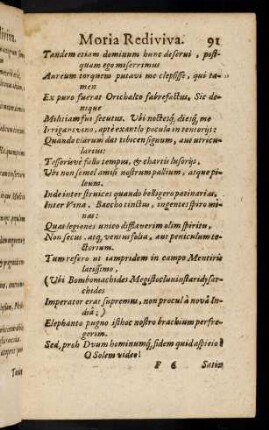 Moria Rediviva. 91
Tandem etiam dominum hunc deserui, post-
quam ego miserrimus
Aureum torquem putavi me clepsisse, qui ta-
men
Ex puro fuerat Orichalco fabrefactus, Sic de-
nique
Militiam sum secutus. Ubi noctesq́, diesq́, me
Irrigans vino, aptè exantlo pocula in tentorijs:
Quando viarum dat tibicen signum, aut utricu-
larius:
Tesserisve fallo tempus, & chartis lusorijs,
Ubi non semel amisi nostrum pallium, atque pi-
leum.
Inde inter fornices quando belligero patinarias,
Inter Vina, Baccho cinctus, ingentes spiro mi-
nas:
Quas legiones unico difflaverim olim spiritu,
Non secus, atq, ventus folia, aut peniculum te-
ctorum.
Tum resero ut iamprodem in campo Mentirio
latissimo,
(Ubi Bombomachides
Imperator erat supremus, non procul à nova In-
diâ;)
Elephanto pugno isthoc nostro brachium per fre-
gerim.
Sed, proh Divum hominumq́, fidem quid aspicio?
O Solem video!
F 6 Satin